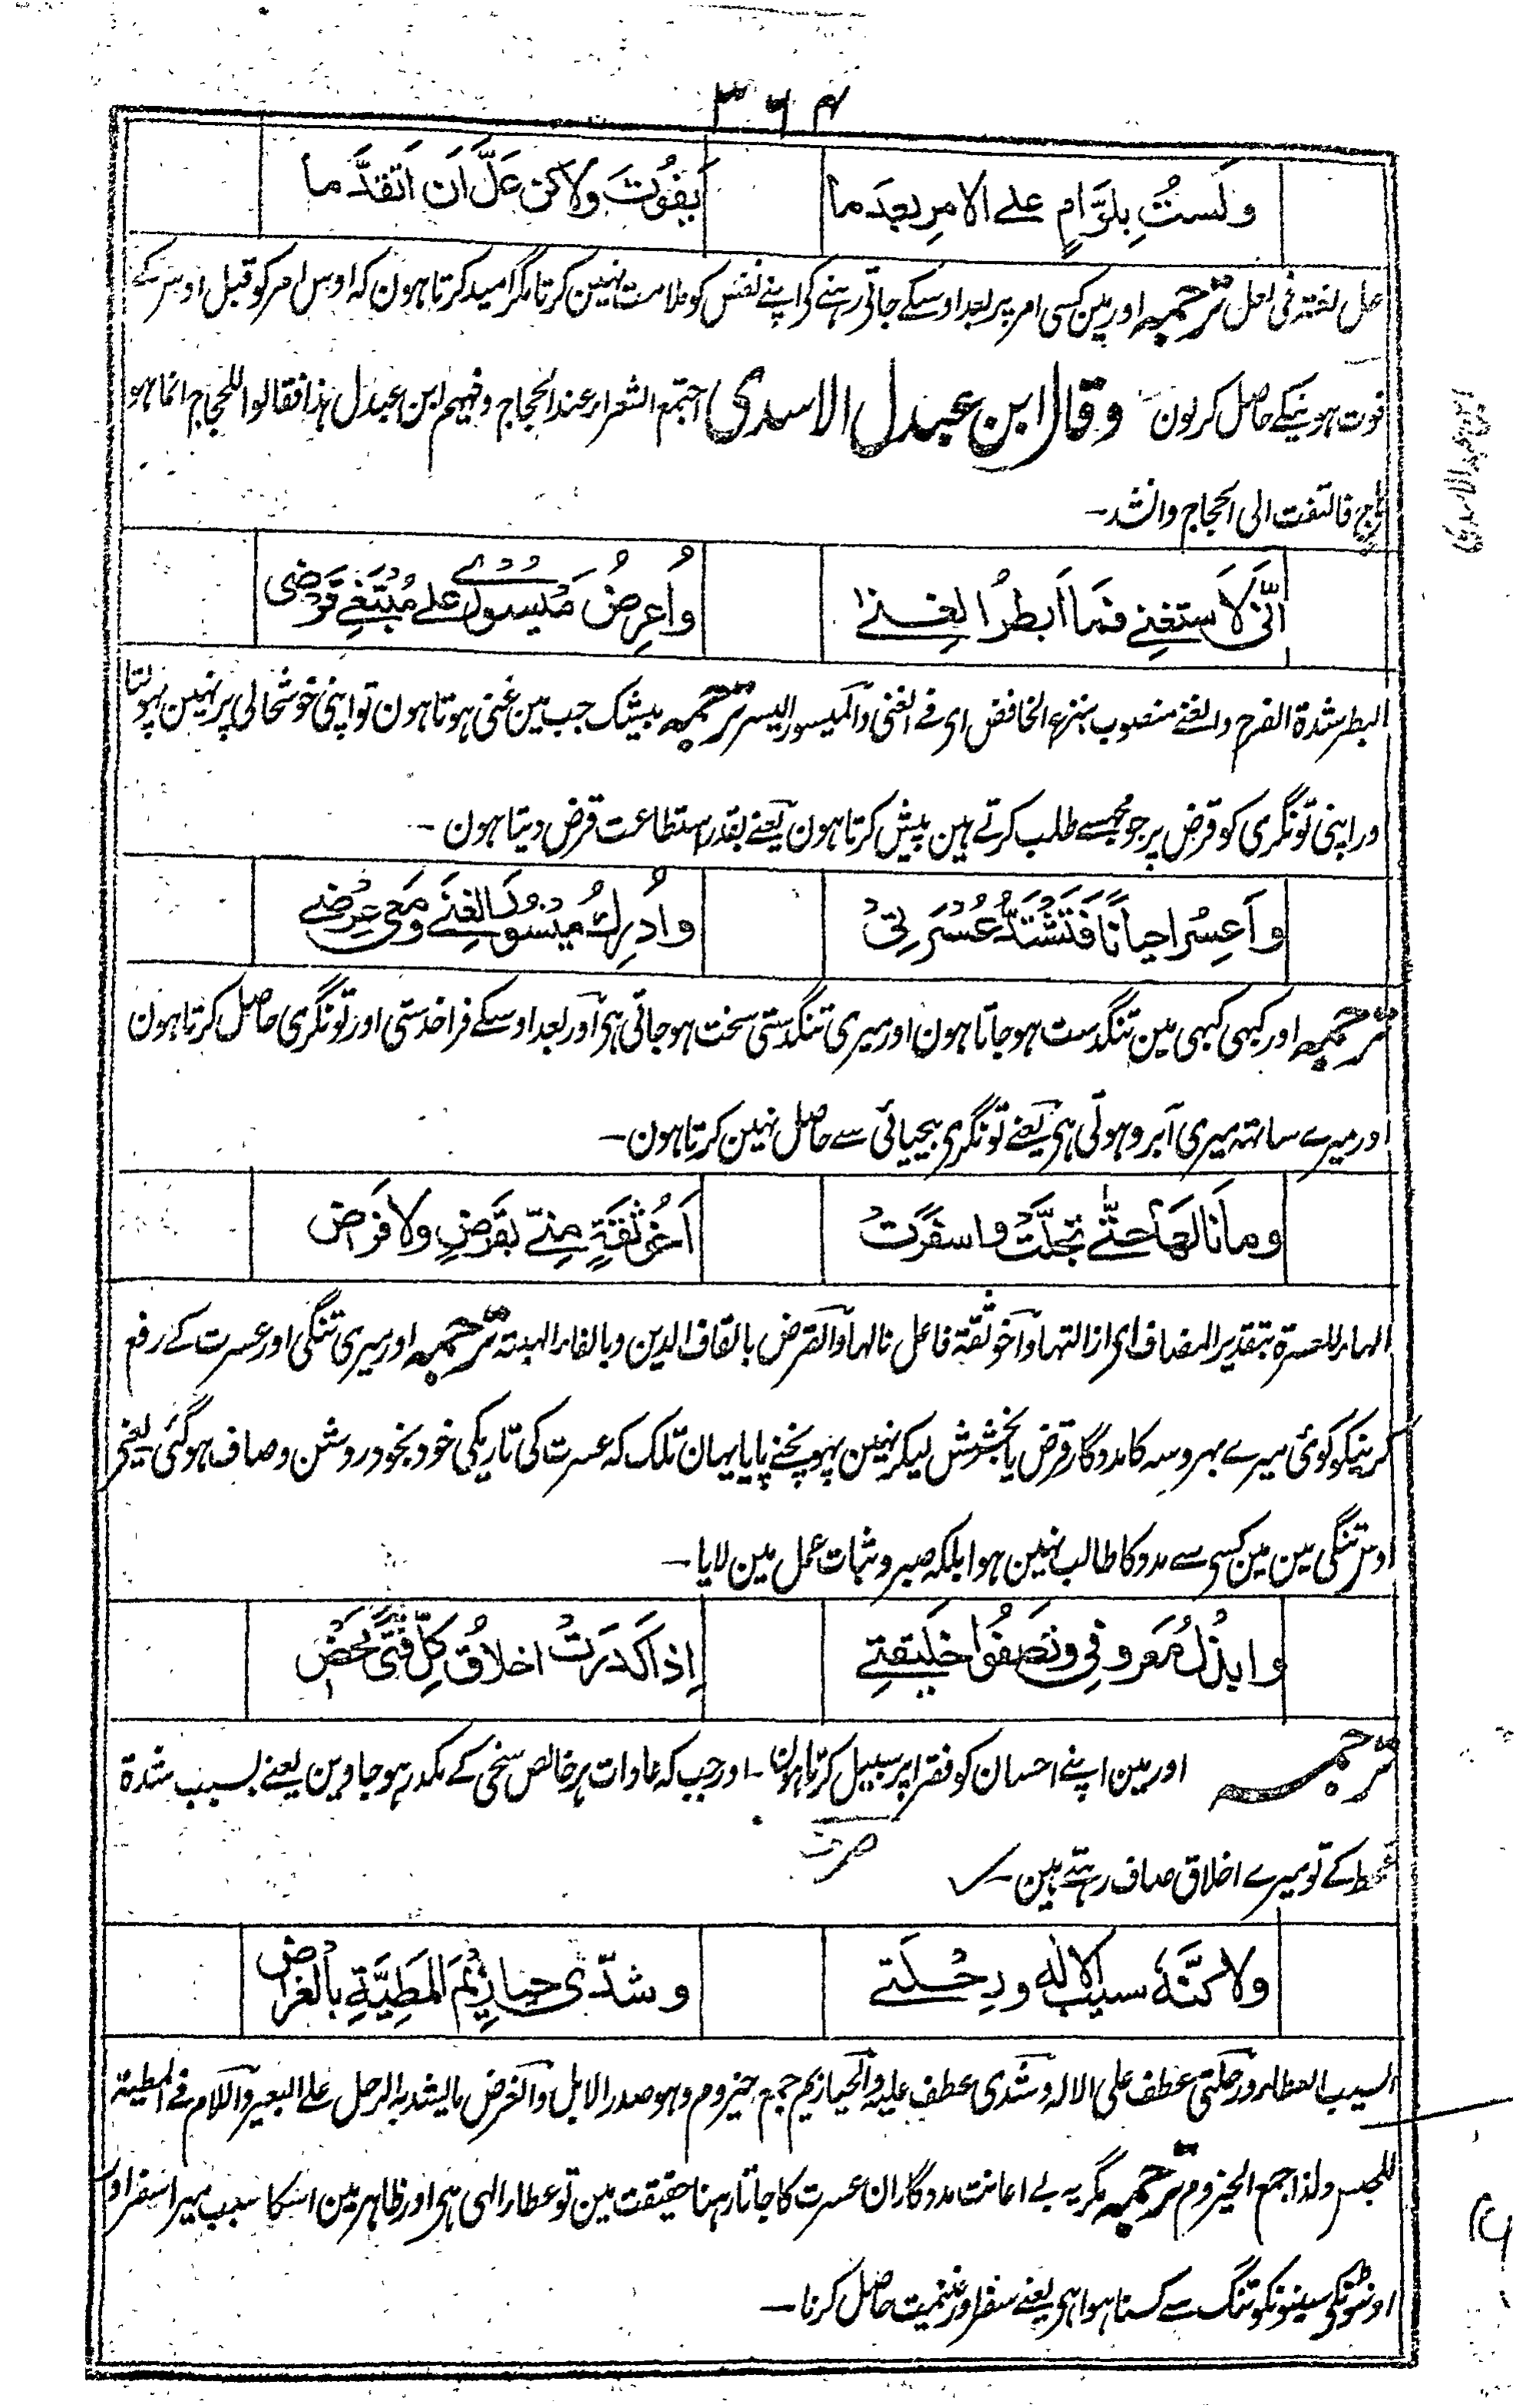 ۳۶۴
وَلَستُ بِلَوَّامٍ علے الامرِ بعدَ ما يَفُوْتَ ولاكن عَلَّ اَن اَتقدَّما
عل لغتہ فی لعل ترجمہ اور مین کسی امر پر بعد اوسکے جاتی رہنے کی اپنے نفس کو ملامت نہین کرتا مگر امید کرتا ہون کہ اوس امر کو قبل اوس کے
فوت ہونیکے حاصل کر لون وقال ابن عبدل الاسدی اجتمع الشعراء عند الحجاج وفیہم ابن عبدل ہذا فقالوا للحجاج انما ہو
فالتفت الی الحجاج وانشد۔
اِنّی لَاَستغنِے فمَا اَبطرُ الغِنےٰ واُعرِضُ مَیسورِی علے مُبتَغِے قَرضِی
البطر شدة الفرح والغنے منصوب بنزع الخافض ای فے الغنی والمیسور الیسر ترجمہ بیشک جب مین غنی ہوتا ہون تو اپنی خوشحالی پر نہین پہولتا
ور اپنی تونگری کو قرض پر جو مجہسے طلب کرتے ہین پیش کرتا ہون یعنے بقدر استطاعت قرض دیتا ہون ۔
واَعسِرُ احیاناً فتَشتَدُّ عُسرَتِیْ واُدرِكُ میسُورَ الغِنےٰ ومَعِی عِرضے
ترجمہ اور کبہی کبہی مین تنگدست ہو جاتا ہون اور میری تنگدستی سخت ہو جاتی ہی اور بعد اوسکے فراخدستی اور تونگری حاصل کرتا ہون
اور میرے ساتہ میری آبرو ہوتی ہی یعنے تونگری بیحیائی سے حاصل نہین کرتا ہون۔
وما نَالهَا حتّٰے تجَلَّتْ واسفَرَتْ اَخُو ثِقَةٍ مِنّے بقَرضٍ ولا فَرضِ
الہاء للعسرة بتقدیر المضاف ای ازالتہا واخو ثقة فاعل نالہا والقرض بالقاف الدین وبالفاء الہبتہ ترجمہ اور میری تنگی اور عسرت کے رفع
کرنیکو کوئی میرے بہروسہ کا مددگار قرض یا بخشش لیکر نہین پہونچنے پایا یہان تلک کہ عسرت کی تاریکی خود بخود روشن وصاف ہو گئی یعنے
اوس تنگی مین مین کسی سے مدد کا طالب نہین ہوا بلکہ صبر و ثبات عمل مین لایا۔
وابذُلُ مَعروفِی وتَصفُو خلِیقتِے اِذا كَدَرَتْ اخلاقُ كلِّ فتًی مَحضِ
ترجمہ اور مین اپنے احسان کو فقرا پر سبیل کرتا ہون۔ اور جب کہ عادات ہر خالص سخی کے مکدر ہو جاوین یعنے بسبب شدة
قحط کے تو میرے اخلاق صاف رہتے ہین۔
ولاكنّهٗ سیبُ الالهِ ورِحْلَتے وشدّی حیازیمَ المَطِیَّةِ بالغرضِ
السیب العطاء ورحلتی عطف علی الالہ وشدی عطف علیہ والحیازیم جمع حیزوم وہو صدر الابل والغرض ما یشد بہ الرحل علے البعیر واللام فے المطیة
للجنس ولذا جمع الحیزوم ترجمہ مگر یہ بے اعانت مددگاران عسرت کا جاتا رہنا حقیقت مین تو عطاء الہی ہی اور ظاہر مین اسکا سبب میرا سفر اور
اونٹونکی سینونکو تنگ سے کسنا ہوا ہی یعنے سفر اور غنیمت حاصل کرنا۔